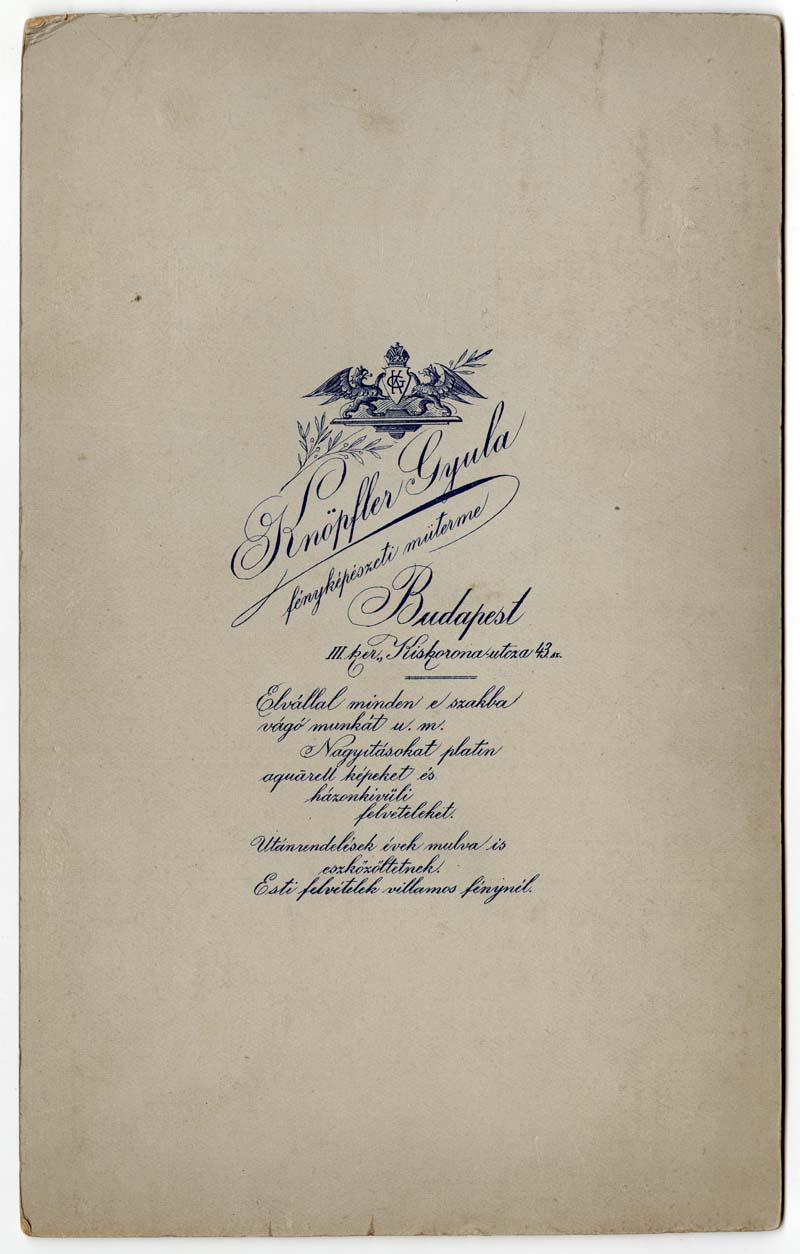 KG
Knöpfler Gyula
fényképészeti műterme
Budapest
III. ker., Kiskorona-utcza 43. sz.
Elvállal minden e szakba
vágó munkát u. m.
Nagyitásokat platin
aquarell képeket és
házonkivüli
felvételeket.
Utánrendelések évek mulva is
eszközöltetnek.
Esti felvételek villamos fénynél.